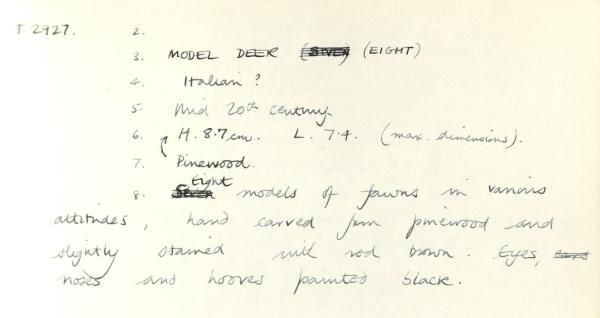 T 2927. 2.
3. MODEL DEER (SEVEN) (EIGHT)
4. Italian ?
5. Mid 20th century.
6. H. 8.7cm. L. 7.4. (max. dimensions).
7. Pinewood.
8. Seven Eight models of fawns in various
attitudes, hand carved from pinewood and
slightly stained with red brown. Eyes, ears
noses and hooves painted black.